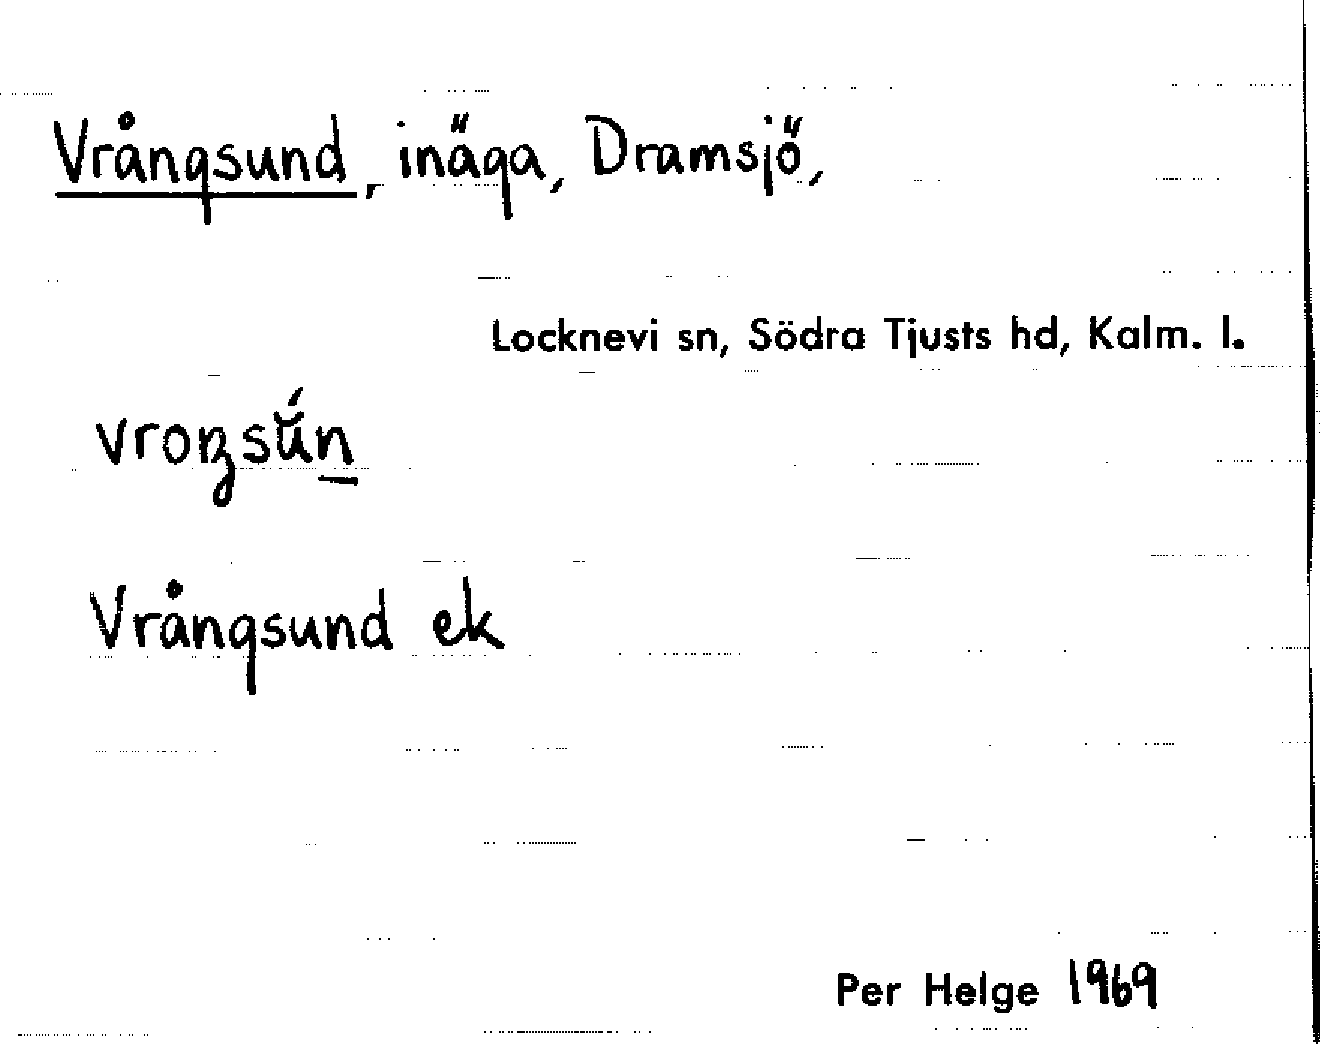 Vrångsund, inäga, Dramsjö,
Locknevi sn, Södra Tjusts hd, Kalm. l.
vroŋsú̆n̲
Vrångsund ek
Per Helge 1969